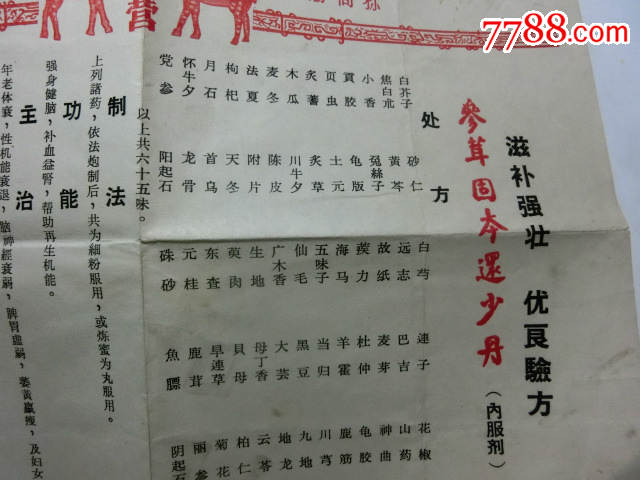 7788.com
孙尚
营
滋补强壮 优良驗方
參茸固本還少丹（內服剂）
处方
白芥子 砂仁 白芍 連子 花椒
焦白朮 黃芩 远志 巴吉 山药
小香 兎絲子 故纸 麦芽 神曲
貢胶 龟版 蓯力 杜仲 龟胶
页虫 土元 海马 羊霍 鹿筋
炙蓍 炙草 五味子 当归 川芎
木瓜 川牛夕 仙毛 黑豆 九地
麦冬 陈皮 广木香 大芸 地龙
法夏 附片 生地 母丁香 云苓
枸杞 天冬 萸肉 貝母 柏仁
月石 首乌 东查 旱連草 菊花
怀牛夕 龙骨 元桂 鹿茸 丽参
党參 阳起石 硃砂 魚膘 阴起石
以上共六十五味。
制法
上列諸药，依法炮制后，共为細粉服用，或炼蜜为丸服用。
功能
强身健脑，补血益腎，帮助再生机能。
主治
年老体衰，性机能衰退，脑神經衰弱，脾胃虛弱，萎黃羸瘦，及妇女